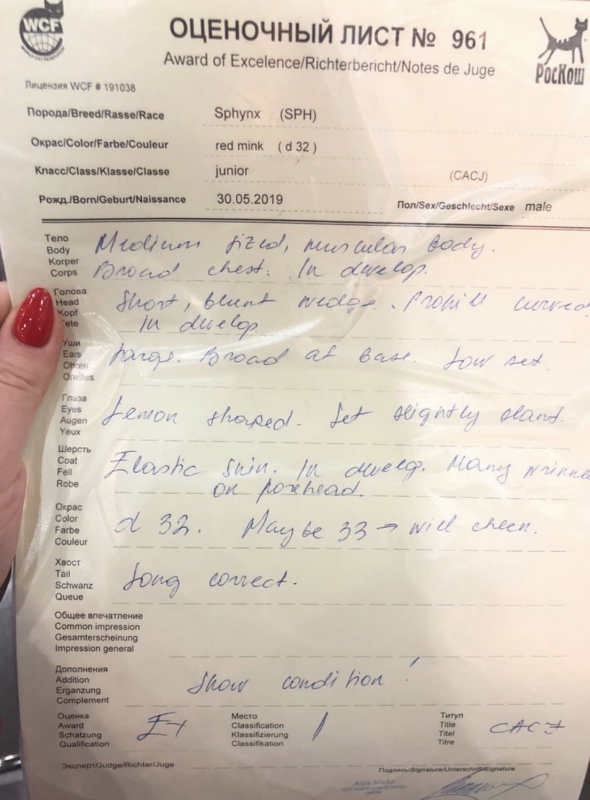 WCF
ОЦЕНОЧНЫЙ ЛИСТ № 961
Award of Excelence/Richterbericht/Notes de Juge
РосКош
Лицензия WCF # 191038
Порода/Breed/Rasse/Race Sphynx (SPH)
Окрас/Color/Farbe/Couleur red mink ( d 32 )
Класс/Class/Klasse/Classe junior (CACJ)
Рожд./Born/Geburt/Naissance 30.05.2019 Пол/Sex/Geschlecht/Sexe male
Тело
Body
Korper
Corps
Medium sized, muscular body.
Broad chest. In develop.
Голова
Head
Kopf
Tete
Short, blunt wedge. Profill curved
In develop
Уши
Ears
Ohren
Oreilles
Large. Broad at base. Low set.
Глаза
Eyes
Augen
Yeux
Lemon shaped. Set slightly slant.
Шерсть
Coat
Fell
Robe
Elastic skin. In develop. Many
on forehead.
Окрас
Color
Farbe
Couleur
d 32. Maybe 33 → will check.
Хвост
Tail
Schwanz
Queue
Long correct.
Общее впечатление
Common impression
Gesamterscheinung
Impression general
Дополнения
Addition
Erganzung
Complement
Show condition!
Оценка
Award
Schatzung
Qualification
Ex
Место
Classification
Klassifizierung
Classifikation
1
Титул
Title
Titel
Titre
CACJ
Эксперт/Judge/Richter/Juge
Подпись/Signature/Unterschrift/Signature